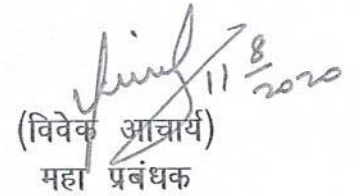 11 8/2020
(विवेक आचार्य)
महा प्रबंधक